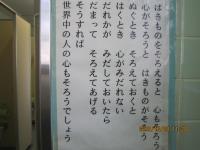 はきものをそろえると 心もそろう
心がそろうと はきものがそろう
ぬぐとき そろえておくと
はくとき 心がみだれない
だれかが みだしておいたら
だまって そろえてあげる
そうすれば
世界中の人の心もそろうでしょう